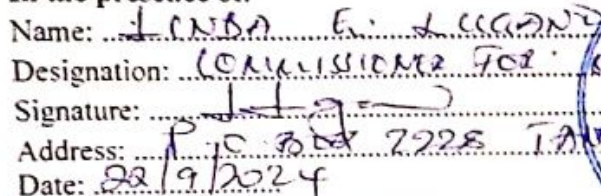 In the presence of:
Name: LINDA E.
Designation: COMMISSIONER FOR
Signature:
Address: P.O BOX 2228 TAN
Date: 22/9/2024